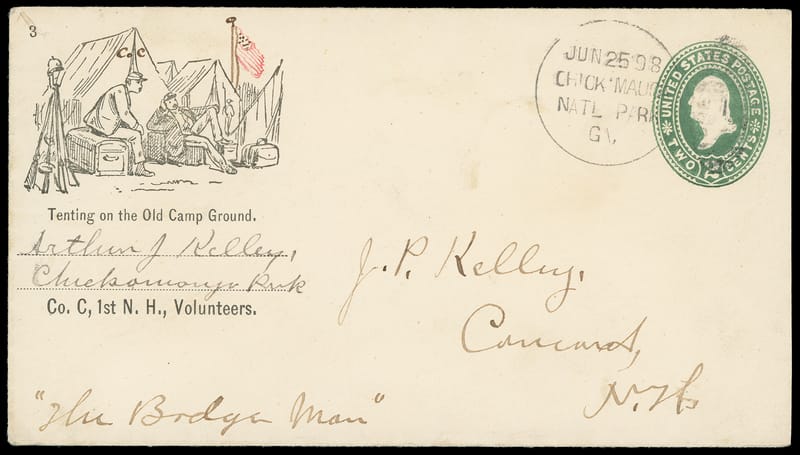 3
C. C
Tenting on the Old Camp Ground.
Arthur J Kelley,
Chickamauga Park
Co. C, 1st N. H., Volunteers.
JUN 25 98
CHICK'MAUG
NATL PARK
GA.
UNITED STATES POSTAGE
TWO 2 CENTS
J. P. Kelley,
Concord,
N. H.
"The Bodger Man"